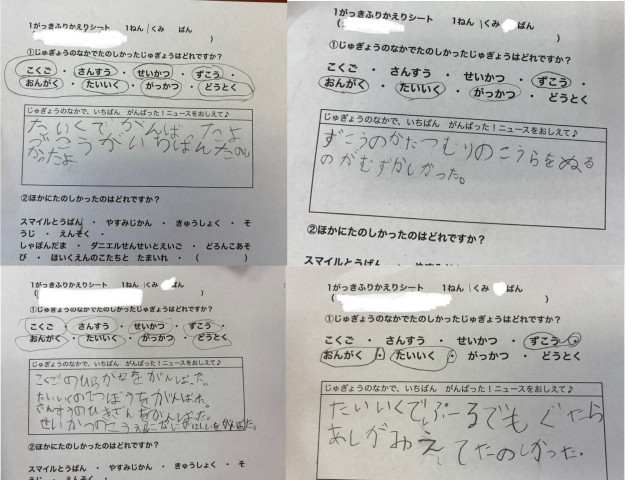 1がっきふりかえりシート 1ねん 1くみ ばん
( )
①じゅぎょうのなかでたのしかったじゅぎょうはどれですか?
こくご ・ さんすう ・ せいかつ ・ ずこう ・
おんがく ・ たいいく ・ がっかつ ・ どうとく
じゅぎょうのなかで、いちばん がんばった!ニュースをおしえて♪
たいいくで がんばったよ
ずこうがいちばんたのし
かったよ
②ほかにたのしかったのはどれですか?
スマイルとうばん ・ やすみじかん ・ きゅうしょく ・ そ
うじ ・ えんそく ・
しゃぼんだま ・ ダニエルせんせいとえいご ・ どろんこあそ
び ・ ほいくえんのこたちと たまいれ ・ ( )
1がっきふりかえりシート 1ねん 1くみ ばん
( )
①じゅぎょうのなかでたのしかったじゅぎょうはどれですか?
こくご ・ さんすう ・ せいかつ ・ ずこう ・
おんがく ・ たいいく ・ がっかつ ・ どうとく
じゅぎょうのなかで、いちばん がんばった!ニュースをおしえて♪
ずこうのかたつむりのこうらをぬる
のがむずかしかった。
②ほかにたのしかったのはどれですか?
スマイルとうばん ・ やすみじかん
1がっきふりかえりシート 1ねん 1くみ ばん
( )
①じゅぎょうのなかでたのしかったじゅぎょうはどれですか?
こくご ・ さんすう ・ せいかつ ・ ずこう ・
おんがく ・ たいいく ・ がっかつ ・ どうとく
じゅぎょうのなかで、いちばん がんばった!ニュースをおしえて♪
こくごのひらがなをがんばった。
たいいくのてつぼうをがんばった。
さんすうのひきざんをがんばった。
せいかつのこうえん をがんばった。
②ほかにたのしかったのはどれですか?
スマイルとうばん ・ やすみじかん ・ きゅうしょく ・ そ
うじ ・ えんそく ・
1がっきふりかえりシート 1ねん 1くみ ばん
( )
①じゅぎょうのなかでたのしかったじゅぎょうはどれですか?
こくご ・ さんすう ・ せいかつ ・ ずこう ・
おんがく ・ たいいく ・ がっかつ ・ どうとく
じゅぎょうのなかで、いちばん がんばった!ニュースをおしえて♪
たいいくでぷーるでもぐたら
あしがみえてたのしかった.